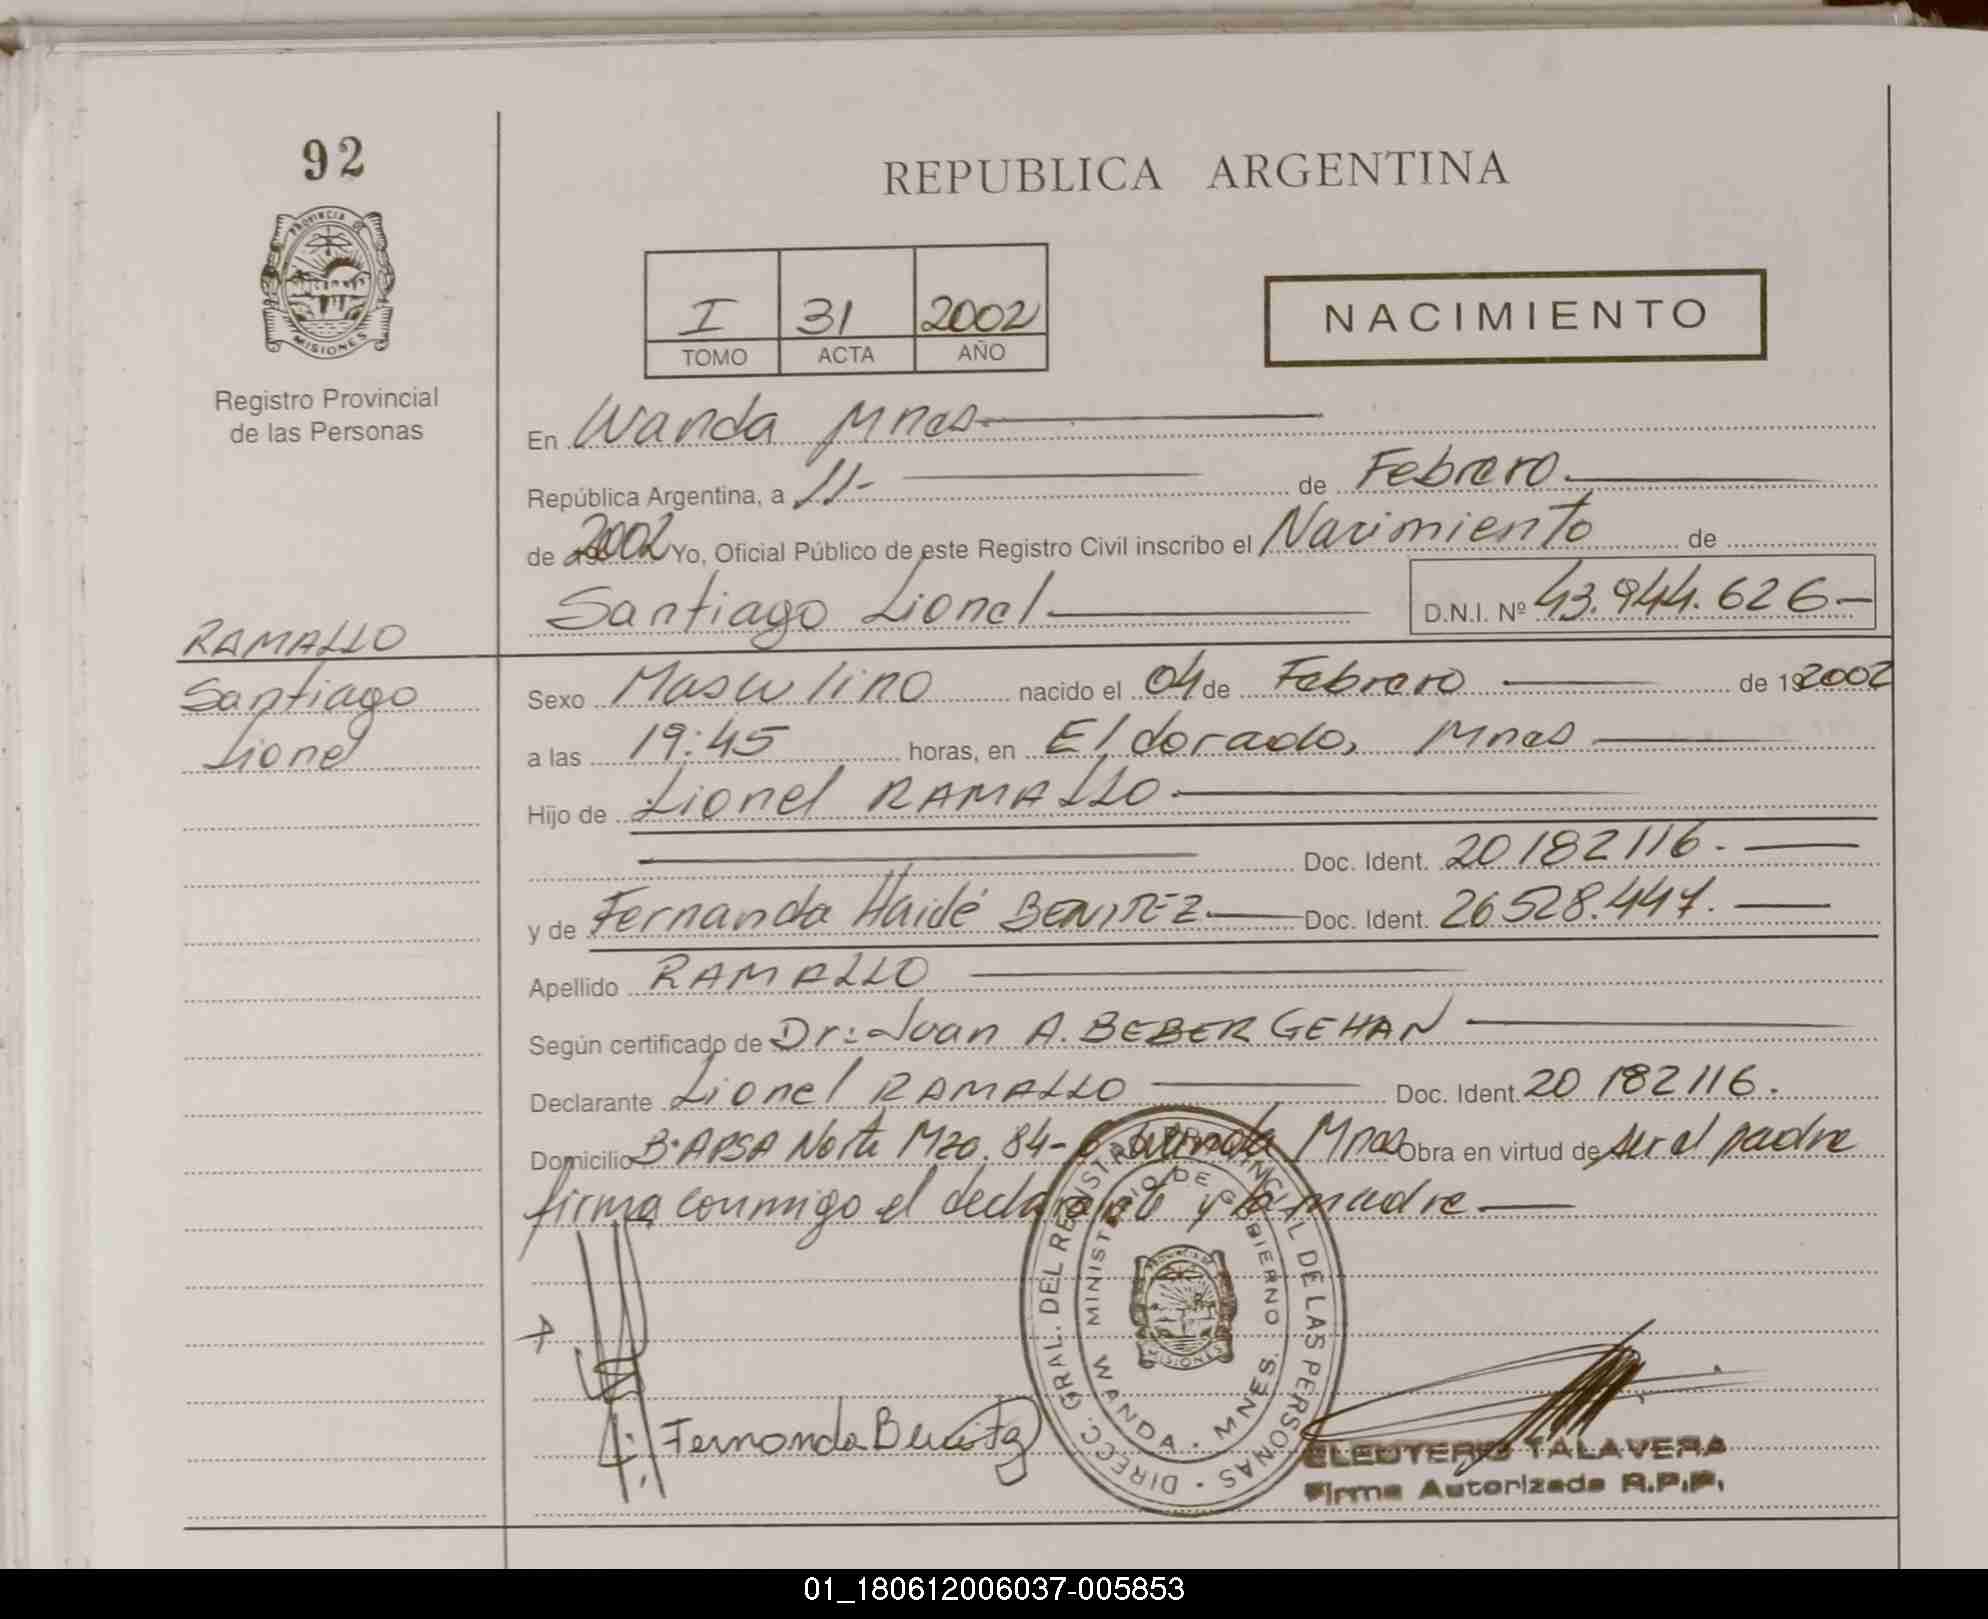 92
PROVINCIA DE
MISIONES
Registro Provincial
de las Personas
RAMALLO
Santiago
Lionel
REPUBLICA ARGENTINA
I 31 2002
TOMO ACTA AÑO
NACIMIENTO
En Wanda Mnes
República Argentina, a 11- de Febrero
de 2002 Yo, Oficial Público de este Registro Civil inscribo el Nacimiento de
Santiago Lionel D.N.I. Nº 43.944.626
Sexo Masculino nacido el 04 de Febrero de 192002
a las 19:45 horas, en Eldorado, Mnes
Hijo de Lionel RAMALLO
Doc. Ident. 20182116.
y de Fernanda Haidé BENITEZ Doc. Ident. 26528.447.
Apellido RAMALLO
Según certificado de Dr: Juan A. BEBER GEHAN
Declarante Lionel RAMALLO Doc. Ident. 20 182116.
Domicilio Bº APSA Norte Mza. 84- Wanda Mnes Obra en virtud de ser el padre
firma conmigo el declarante y la madre
DIRECC. GRAL. DEL REGISTRO PROVINCIAL DE LAS PERSONAS
MINISTERIO DE GOBIERNO
WANDA - MNES.
MISIONES
Fernanda Benitez
ELEUTERIO TALAVERA
Firma Autorizada R.P.P.
01_180612006037-005853